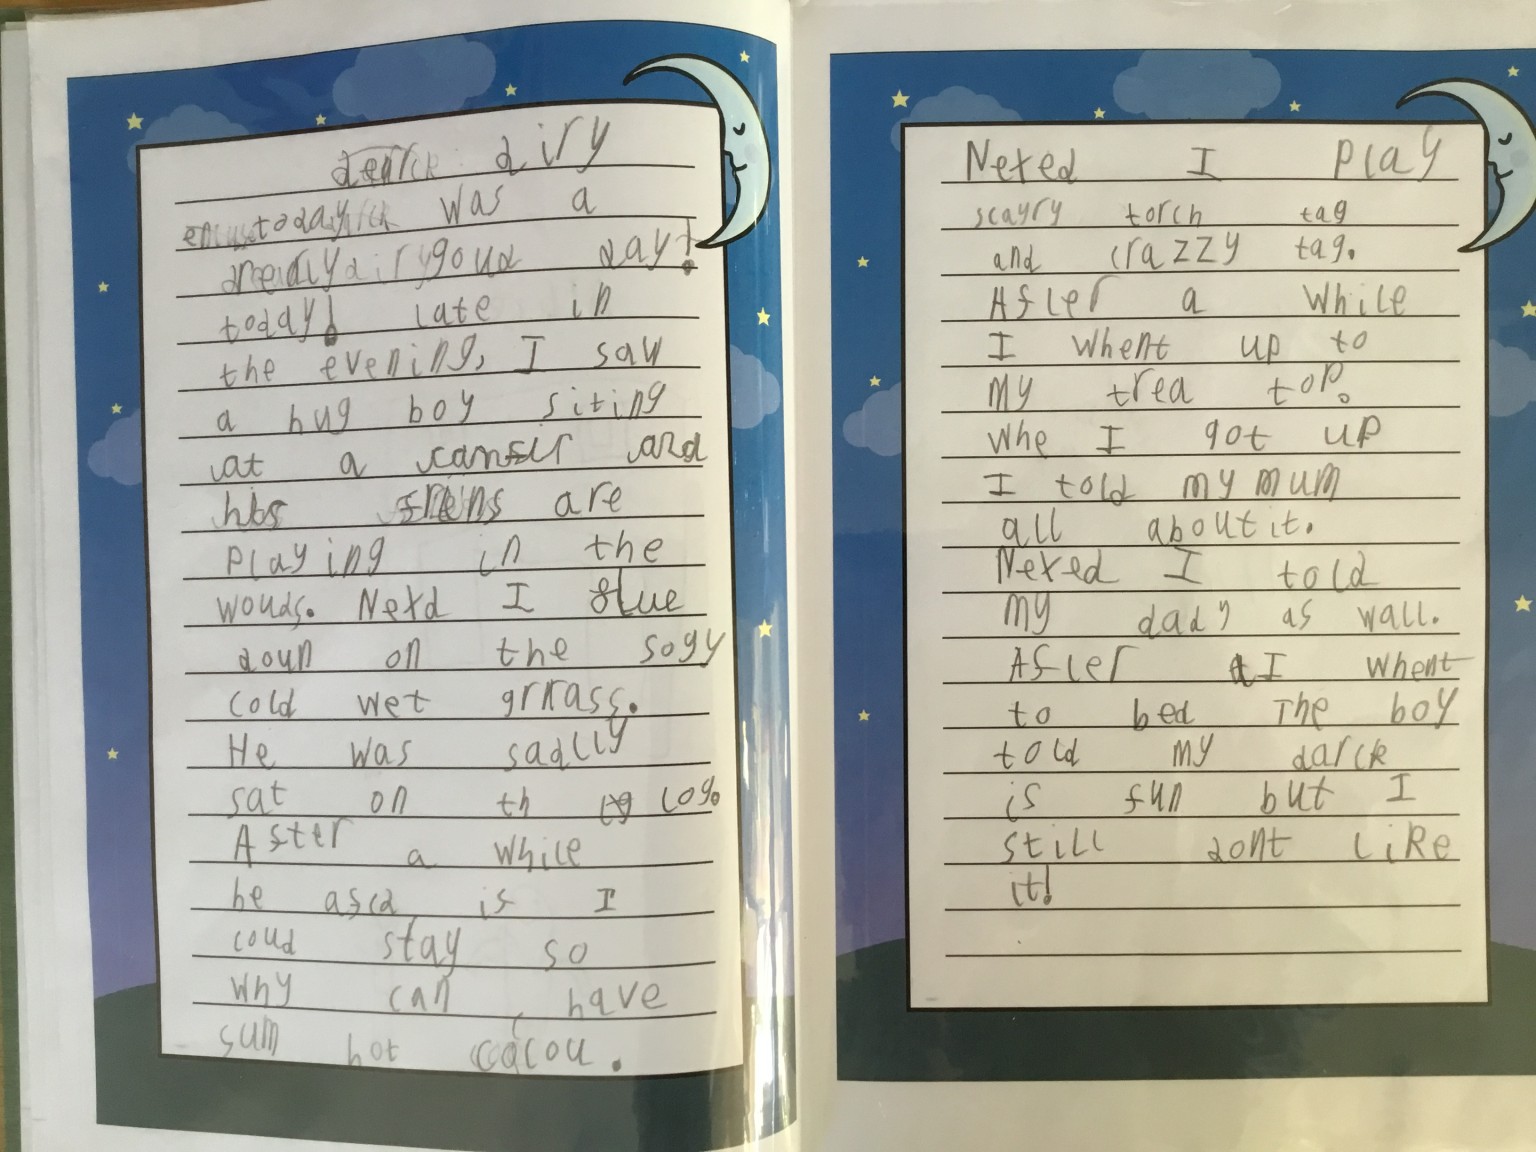 dearck diry
today was a
really goud day!
today! late in
the evening, I saw
a hug boy siting
at a camfir and
his frens are
playing in the
wouds. Nexd I flue
doun on the sogy
cold wet grrass.
He was sadlly
sat on th log.
After a while
he ascd is I
coud stay so
why can have
sum hot cocou.
Nexed I play
scayry torch tag
and crazzy tag.
After a while
I whent up to
my trea top.
whe I got up
I told my mum
all about it.
Nexed I told
my dady as wall.
After I whent
to bed The boy
told my darck
is fun but I
still dont like
it!